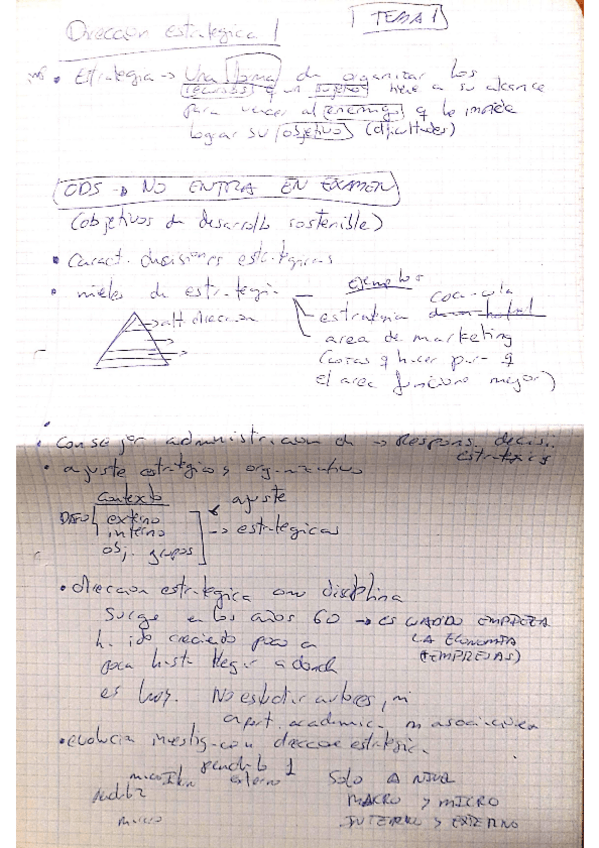 Dirección estratégica 1
TEMA 1
• Estrategia → Una forma de organizar los
recursos q un sujeto tiene a su alcance
para vencer al enemigo q le impide
lograr su objetivo (dificultades)
ODS → NO ENTRA EN EXAMEN
(objetivos de desarrollo sostenible)
• Caract. decisiones estratégicas
• niveles de estrategia
ejemplos
estrategia coca-cola
→ alt dirección
area de marketing
(cosas q hacer para q
el area funcione mejor)
• Consejo administración → Respons. decis.
estratégicas
• ajuste estratégico y organizativo
contexto
DAFO externo
interno
obj. grupos
ajuste
→ estratégicas
• dirección estratégica como disciplina
Surge en los años 60 → ES CUANDO EMPIEZA
LA ECONOMIA
(EMPRESAS)
ha ido creciendo poco a
poco hasta llegar a donde
es hoy. No estudiar autores, ni
aport. académica ni asociaciones
• evolución investigación dirección estratégica
1
externo
SOLO A NIVEL
MACRO Y MICRO
micro
INTERNO Y EXTERNO